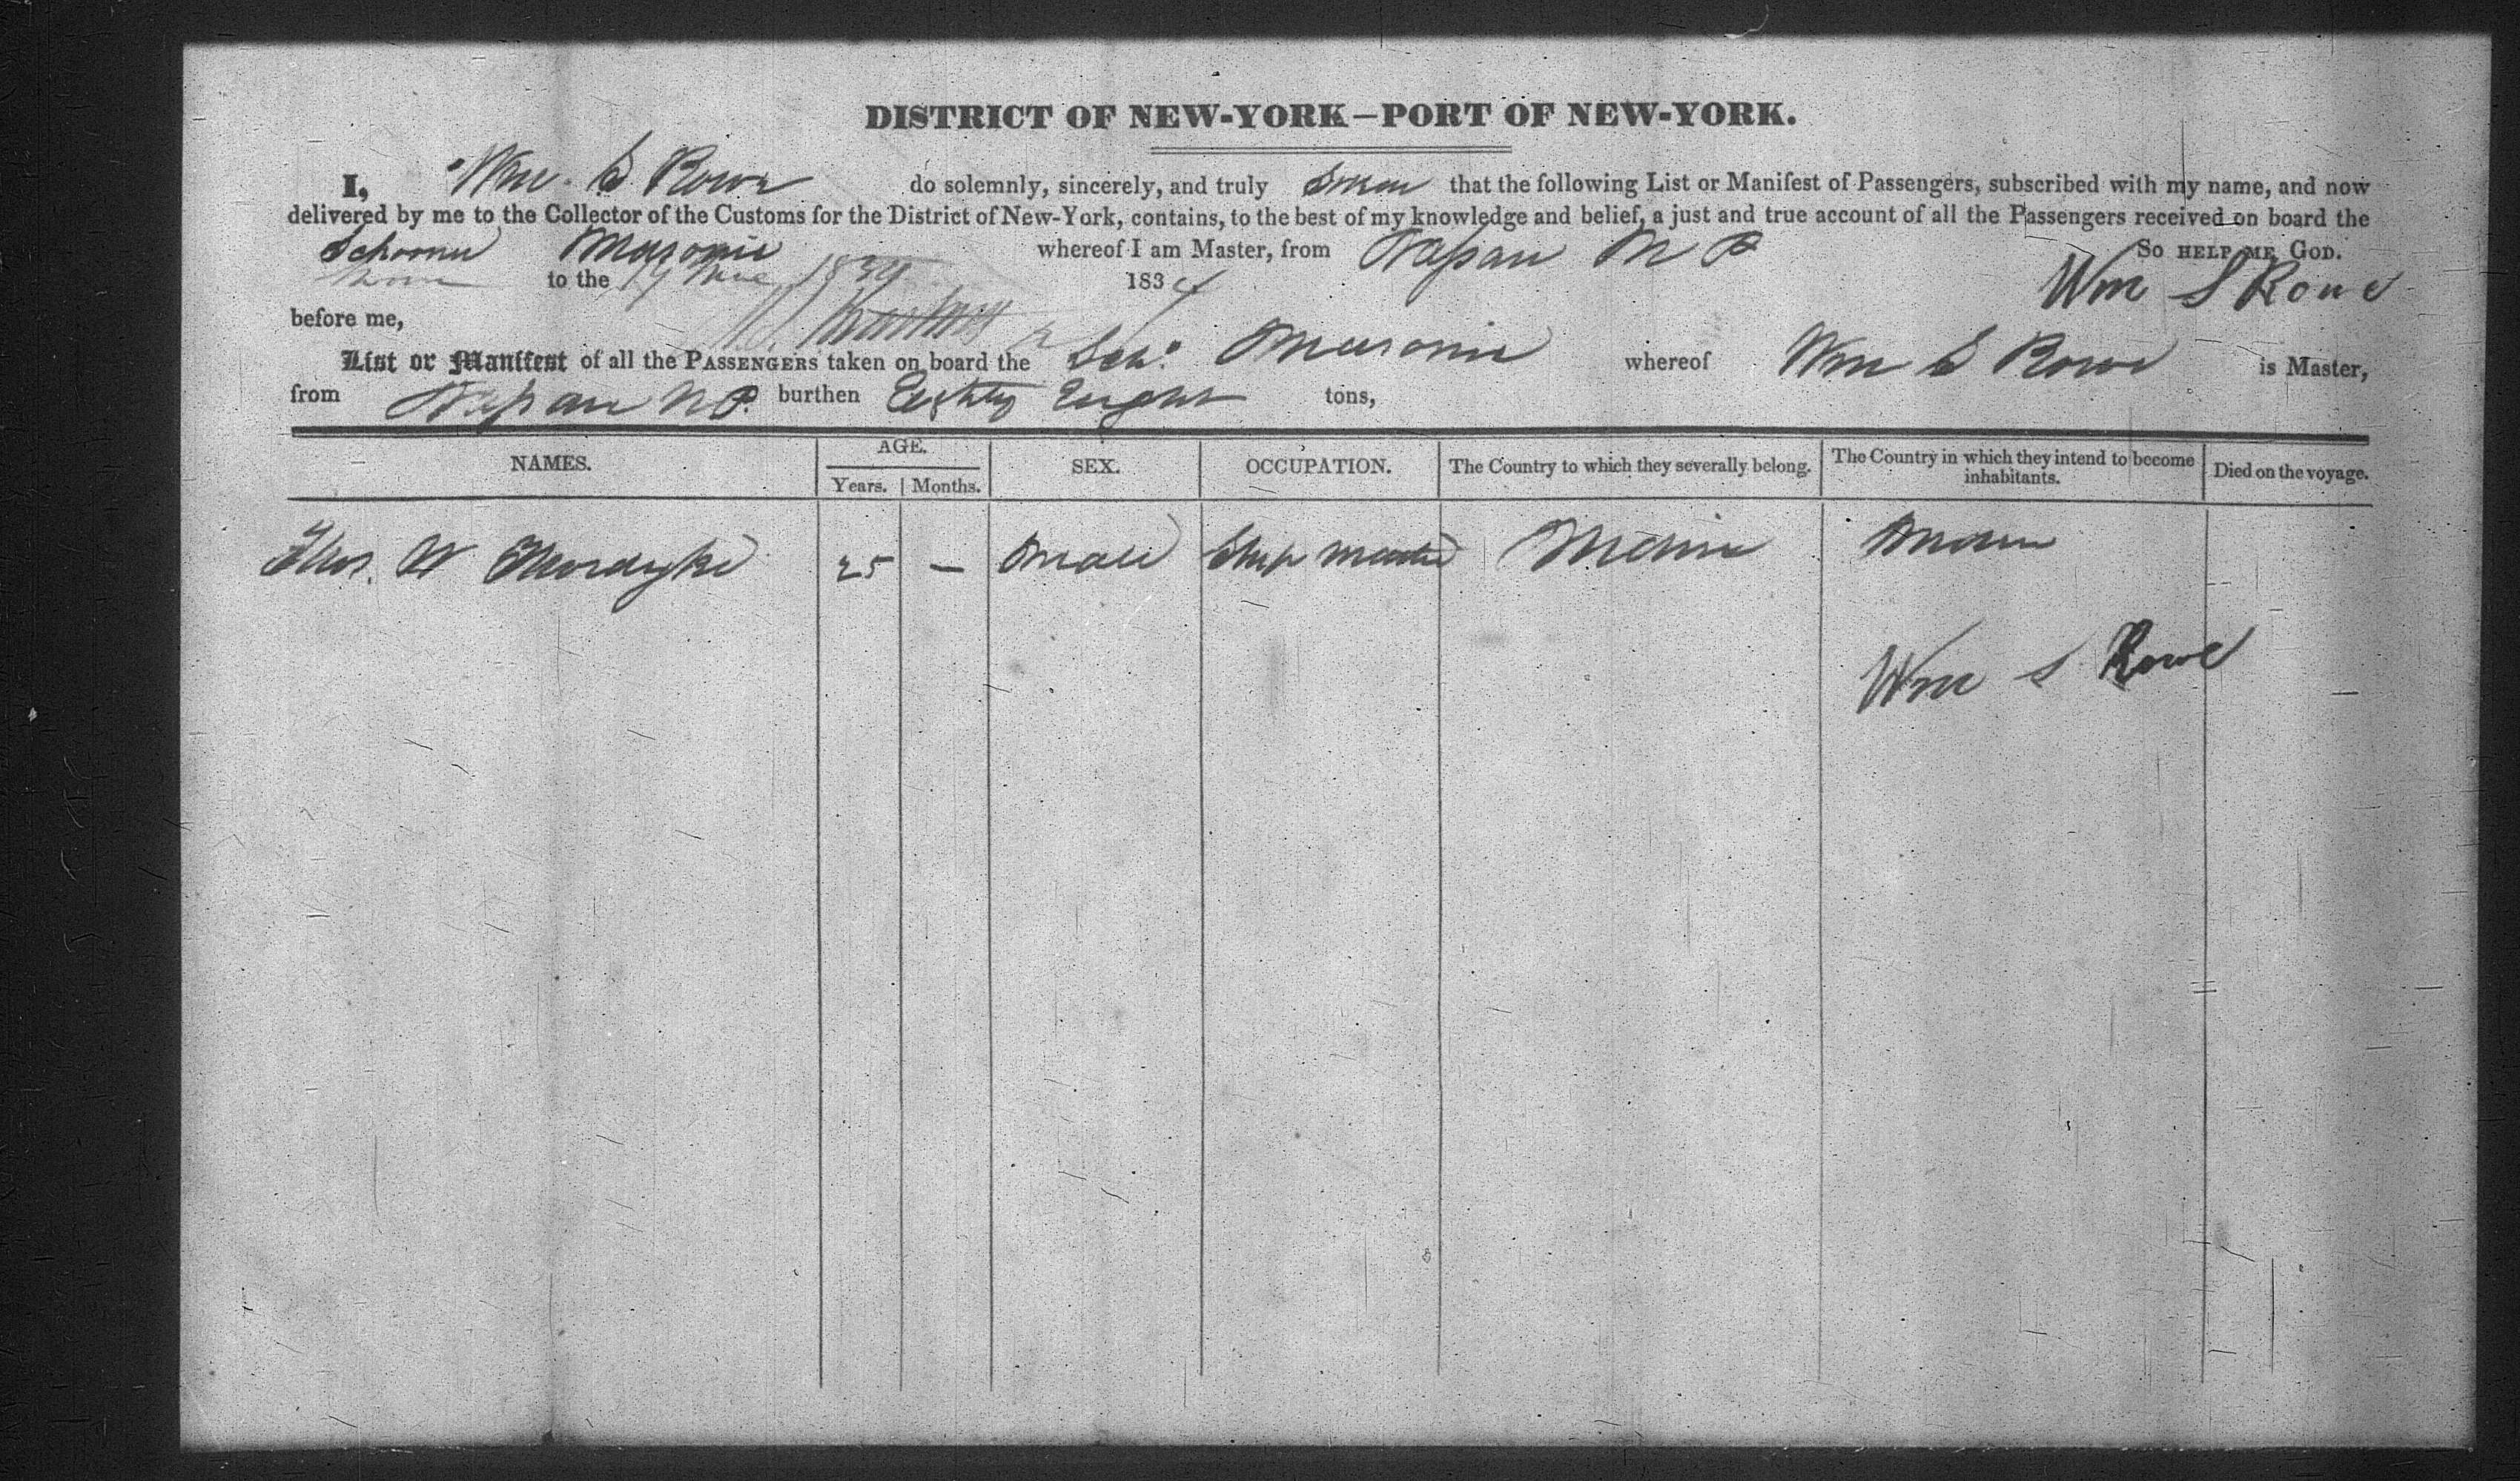 DISTRICT OF NEW-YORK—PORT OF NEW-YORK.
I, Wm. S. Rowe do solemnly, sincerely, and truly swear that the following List or Manifest of Passengers, subscribed with my name, and now
delivered by me to the Collector of the Customs for the District of New-York, contains, to the best of my knowledge and belief, a just and true account of all the Passengers received on board the
Schooner Masonic whereof I am Master, from Nassau N P So HELP ME GOD.
to the 19 1834 1834 Wm S Rowe
before me,
List or Manifest of all the PASSENGERS taken on board the Schr. Masonic whereof Wm S Rowe is Master,
from Nassau N P. burthen Eighty Eight tons,
NAMES. AGE. Years. Months. SEX. OCCUPATION. The Country to which they severally belong. The Country in which they intend to become inhabitants. Died on the voyage.
Thos. W Thorndyke 25 — Male Ship Master Maine Maine
Wm S Rowe